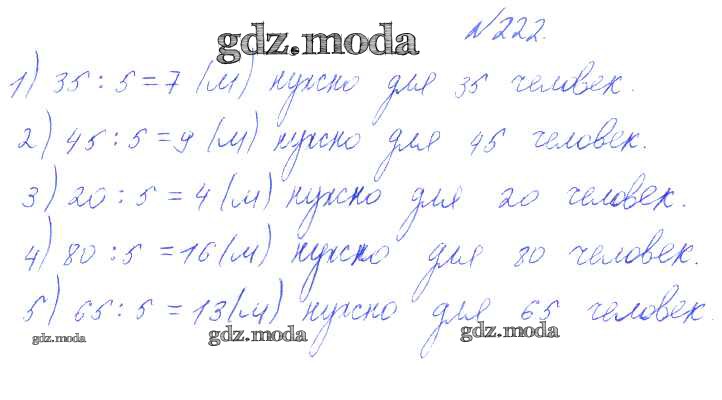 gdz.moda №222.
1) 35 : 5 = 7 (м) нужно для 35 человек.
2) 45 : 5 = 9 (м) нужно для 45 человек.
3) 20 : 5 = 4 (м) нужно для 20 человек.
4) 80 : 5 = 16 (м) нужно для 80 человек.
5) 65 : 5 = 13 (м) нужно для 65 человек.
gdz.moda gdz.moda gdz.moda